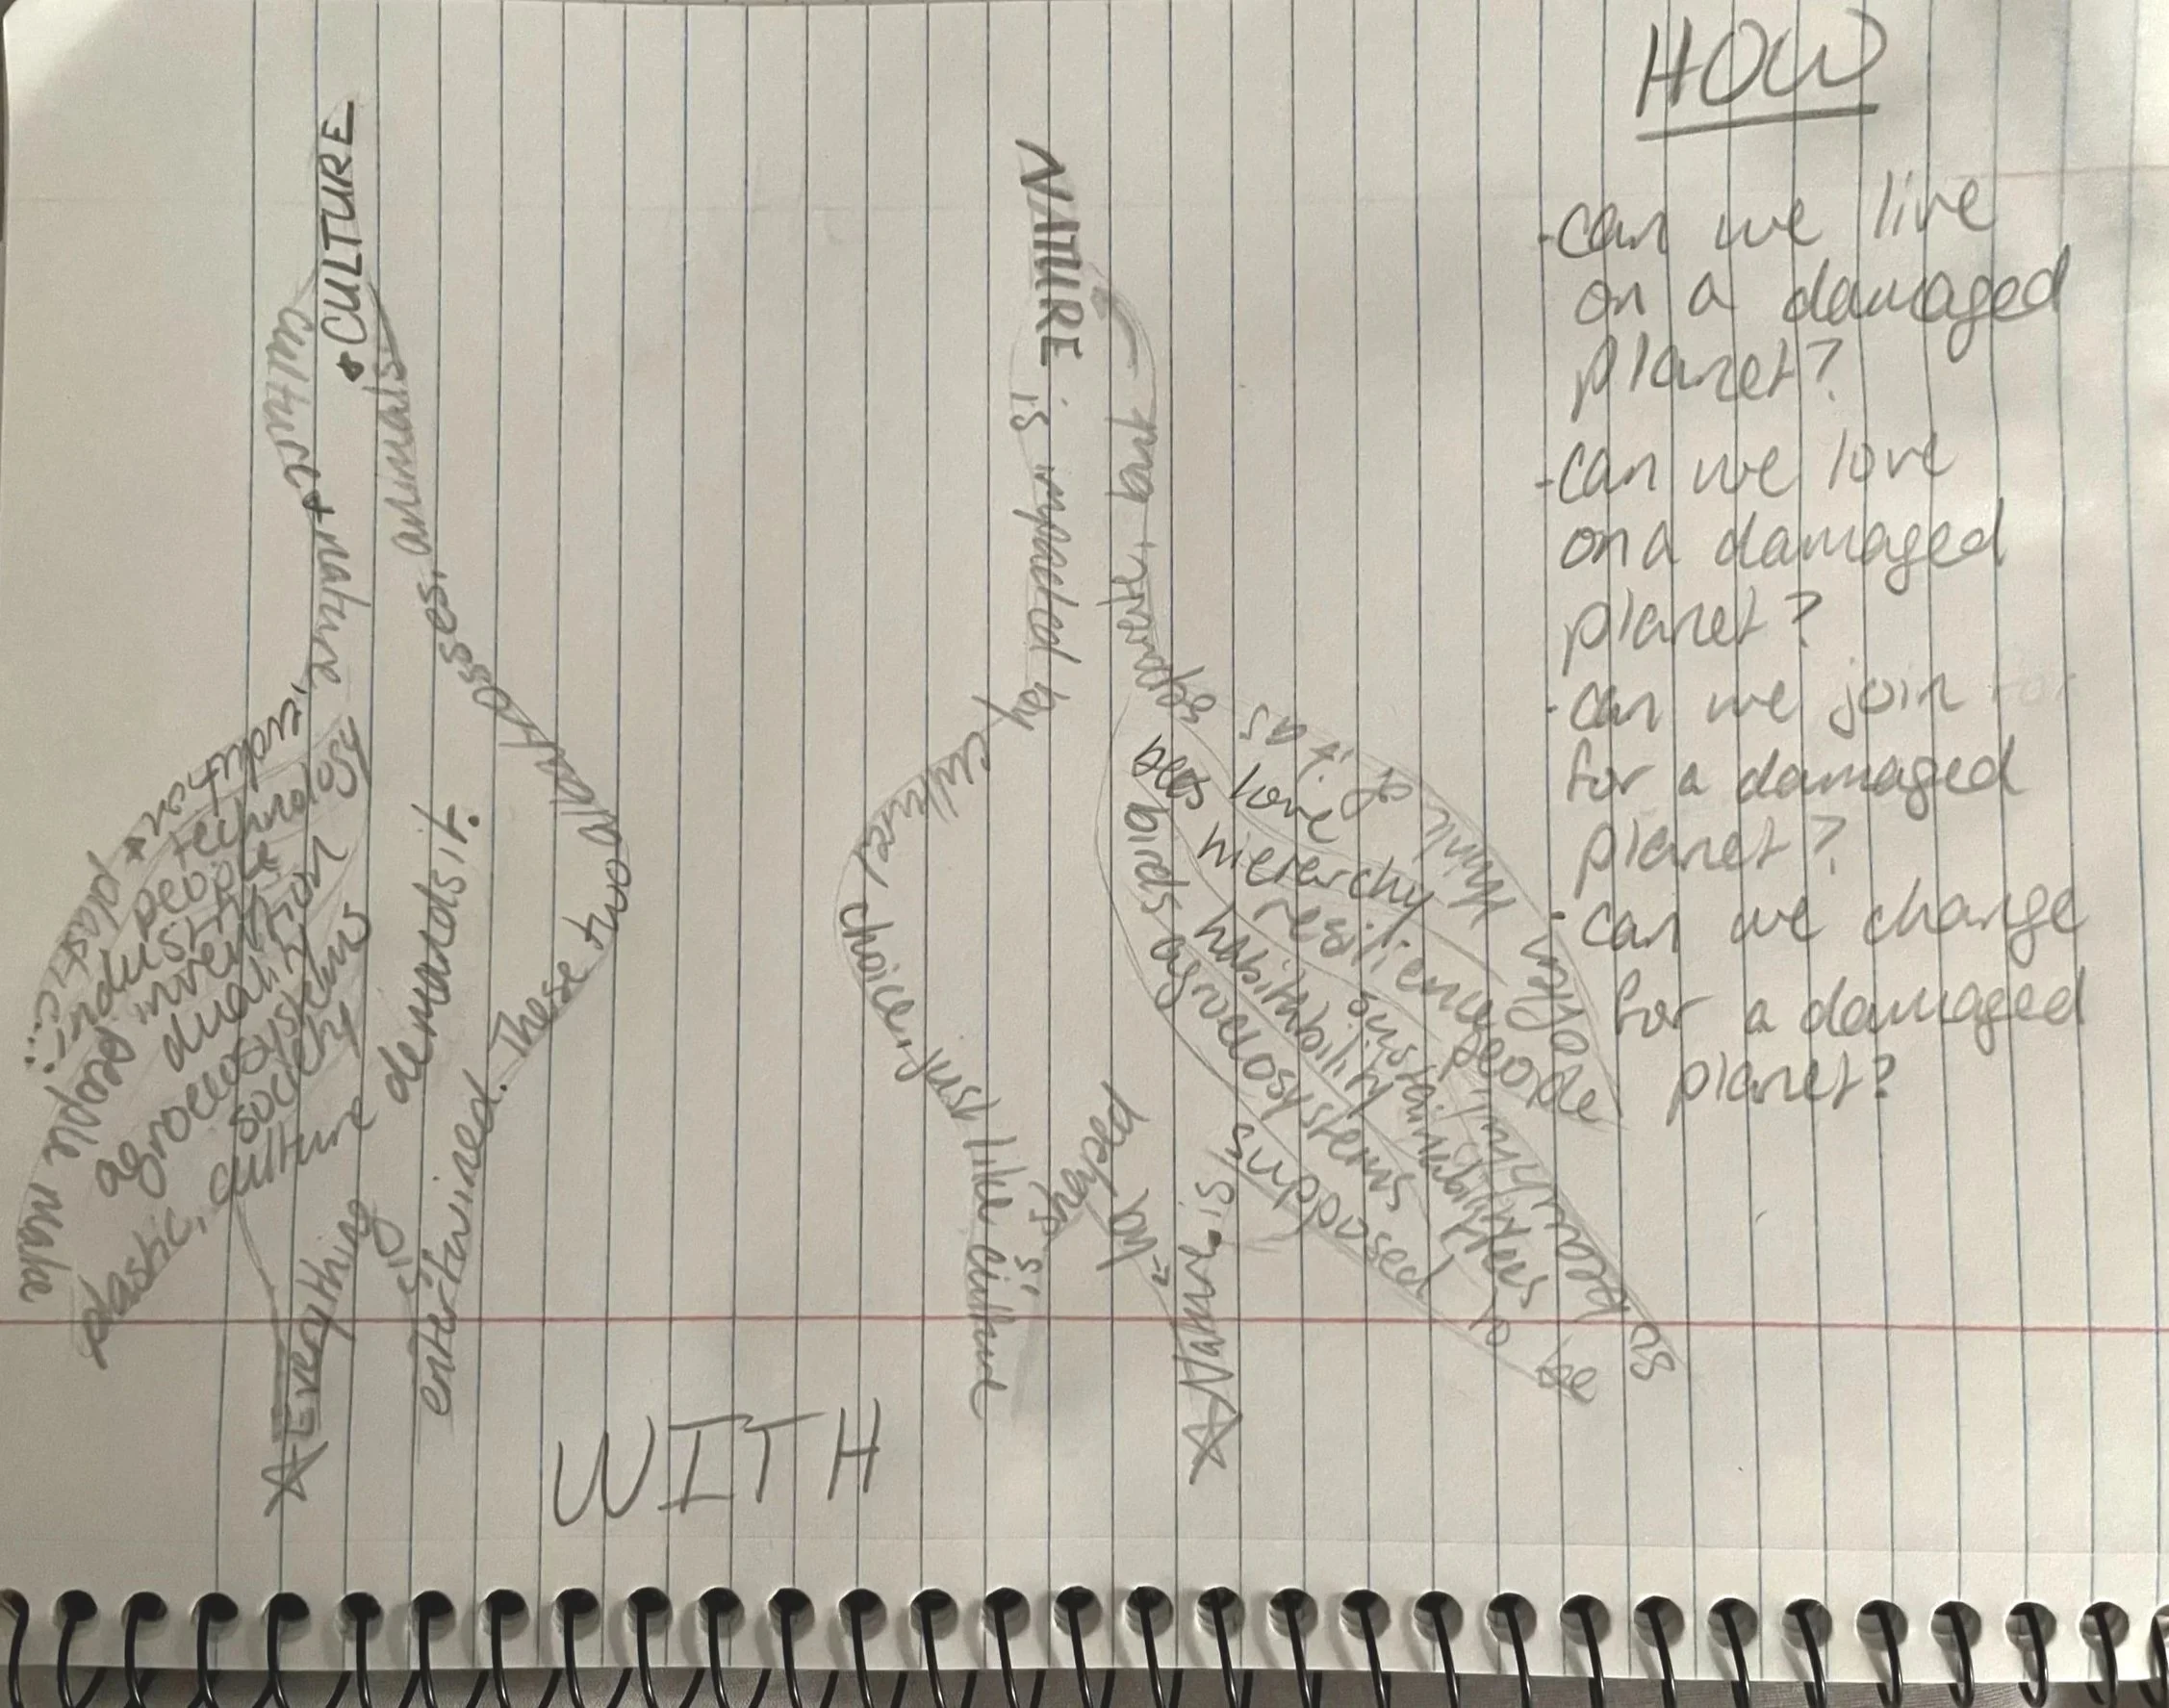 CULTURE
culture + nature.
pollution + plastic...
people make
plastic, culture demands it.
technology
people
industries
invention
duality
agroecosystems
society
Everything
is
entertwined. These two
animals.
NATURE is impacted by cultural choice, just like culture
is shaped
by
Nature is supposed to be
is
often think of it as
bees
love
birds
hierarchy
resilience
people
habitability
sustainability
trees
agroecosystems
WITH
HOW
- can we live
on a damaged
planet?
- can we love
on a damaged
planet?
- can we join
for a damaged
planet?
- can we change
for a damaged
planet?